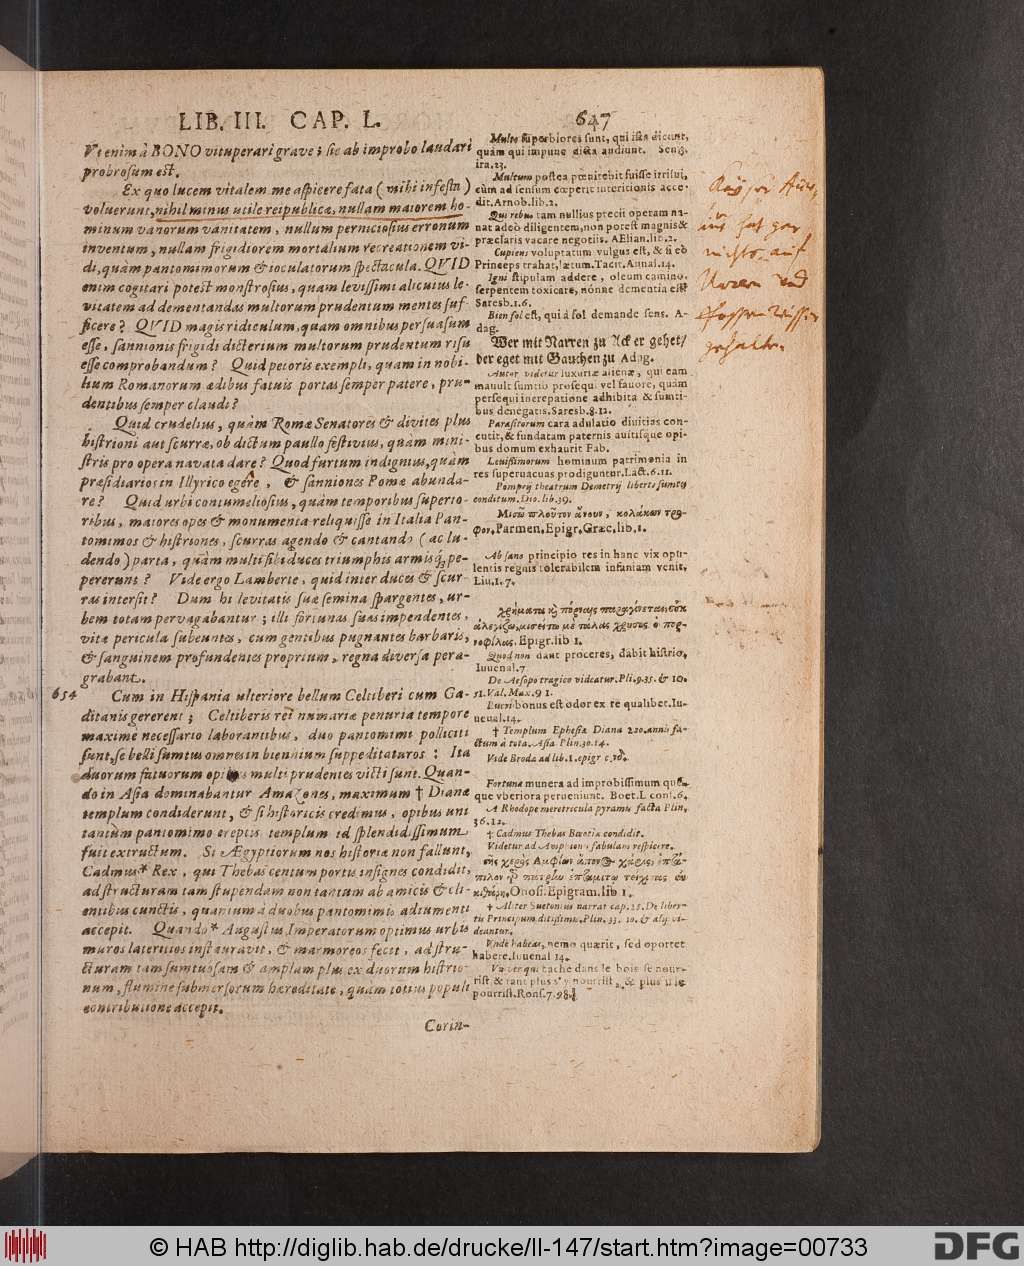 LIB. III. CAP. L. 647
Ut enim à BONO vituperari grave; sic ab improbo laudari
probrosum est.
Ex quo lucem vitalem me aspicere fata (mihi infesta)
voluerunt, nihil minus utile reipublicæ, nullam maiorem ho-
minum vanorum vanitatem, nullum perniciosius erronum
inventum, nullam frigidiorem mortalium recreationem vi-
di, quàm pantomimorum & ioculatorum spectacula. QVID
enim cogitari potest monstrosius, quam levissimi alicuius le-
vitatem ad dementandas multorum prudentum mentes suf-
ficere? QVID magis ridiculum, quam omnibus persuasum
esse, sannionis frigidi dicterium multorum prudentum risu
esse comprobandum? Quid peioris exempli, quam in nobi-
lium Romanorum ædibus fatuis portas semper patere, pru-
dentibus semper claudi?
Quid crudelius, quàm Romæ Senatores & divites plus
histrioni aut scurræ, ob dictum paullo festivius, quàm mini-
stris pro opera navata dare? Quod furtum indignius, quàm
præsidiarios in Illyrico egere, & sanniones Romæ abunda-
re? Quid urbi contumeliosius, quàm temporibus superio-
ribus, maiores opes & monumenta reliquisse in Italia Pan-
tomimos & histriones, scurras agendo & cantando (ac lu-
dendo) parta, quàm multi sibi duces triumphis armisq́; pe-
pererunt? Vide ergo Lamberte, quid inter duces & scur-
ras intersit? Dum hi levitatis suæ semina spargentes, ur-
bem totam pervagabantur; illi fortunas suas impendentes,
vitæ pericula subeuntes, cum gentibus pugnantes barbaris,
& sanguinem profundentes proprium, regna diversa pera-
grabant.
654 Cum in Hispania ulteriore bellum Celtiberi cum Ga-
ditanis gererent; Celtiberis rei numariæ penuria tempore
maximè necessario laborantibus, duo pantomimi polliciti
sunt, se belli sumtus omnes in biennium suppeditaturos: Ita
duorum fatuorum opibus multi prudentes victi sunt. Quan-
do in Asia dominabantur Amazones, maximum † Dianæ
templum condiderunt, & si historicis credimus, opibus uni
tantùm pantomimo ereptis templum id splendidissimum
fuit extructum. Si Ægyptiorum nos historiæ non fallunt,
Cadmus* Rex, qui Thebas centum portis insignes condidit,
ad structuram tam stupendam non tantum ab amicis & cli-
entibus cunctis, quantum à duobus pantomimis adiumenti
accepit. Quando* Augustus Imperatorum optimus urbis
muros lateritios instauravit, & marmoreos fecit, ad stru-
cturam tam sumtuosam & amplam plus ex duorum histrio-
num, flumine submersorum hæreditate, quàm totius populi
contributione accepit.
Corin-
Multo superbiores sunt, qui ista dicunt,
quàm qui impune dicta audiunt. Seneg.
ira.23.
Multum postea pœnitebit fuisse irrisui,
cùm ad sensum cœperit interitionis acce-
dit. Arnob.lib.2.
Qui rebus tam nullius precii operam na-
nat adeò diligentem, non potest magnis &
præclaris vacare negotiis. AElian.lib.2.
Cupiens voluptatum vulgus est, & si eò
Princeps trahat, lætum. Tacit. Annal.14.
Igni stipulam addere, oleum camino,
serpentem toxicare, nónne dementia est?
Saresb.1.6.
Bien fol est, qui à fol demande sens. A-
dag.
Wer mit Narren zu Acker gehet/
der eget mit Gauchen zu Adag.
Autor videtur luxuriæ alienæ, qui eam
mauult sumtio prosequi vel fauore, quàm
persequi increpatione adhibita & sumti-
bus denegatis. Saresb.8.12.
Parasitorum cara adulatio diuitias con-
cutit, & fundatam paternis auitisque opi-
bus domum exhaurit Fab.
Leuissimorum hominum patrimonia in
res superuacuas prodiguntur. Lact.6.11.
Pompeij theatrum Demetrij liberti sumtu
conditum. Dio.lib.39.
Parmen. Epigr. Græc. lib. 1.
Ab sano principio res in hanc vix opu-
lentis regnis tolerabilem insaniam venit.
Liu.l.7.
Epigr. lib 1.
Quod non dant proceres, dabit histrio.
Iuuenal.7
De Aesopo tragico videatur. Pli.9.35. & 10.
51. Val. Max. 9 1.
Lucri bonus est odor ex re qualibet. Iu-
uenal.14.
† Templum Ephesiæ Dianæ 220. annis fa-
ctum à tota Asia Plin.36.14.
Vide Broda ad lib.1.epigr
Fortuna munera ad improbissimum quē-
que vberiora perueniunt. Boet.L conf.6.
A Rhodope meretricula pyramis facta Plin.
36.12.
† Cadmus Thebas Bœotiæ condidit.
Videtur ad Amphionis fabulam respicere.
Onost. Epigram. lib 1.
† Aliter Suetonius narrat cap. 25. De liber-
tis Principum ditissimis. Plin. 33. 10. & alij vi-
deantur.
Vnde habeas, nemo quærit, sed oportet
habere. Iuuenal 14.
pourrist. Rons.7.98.